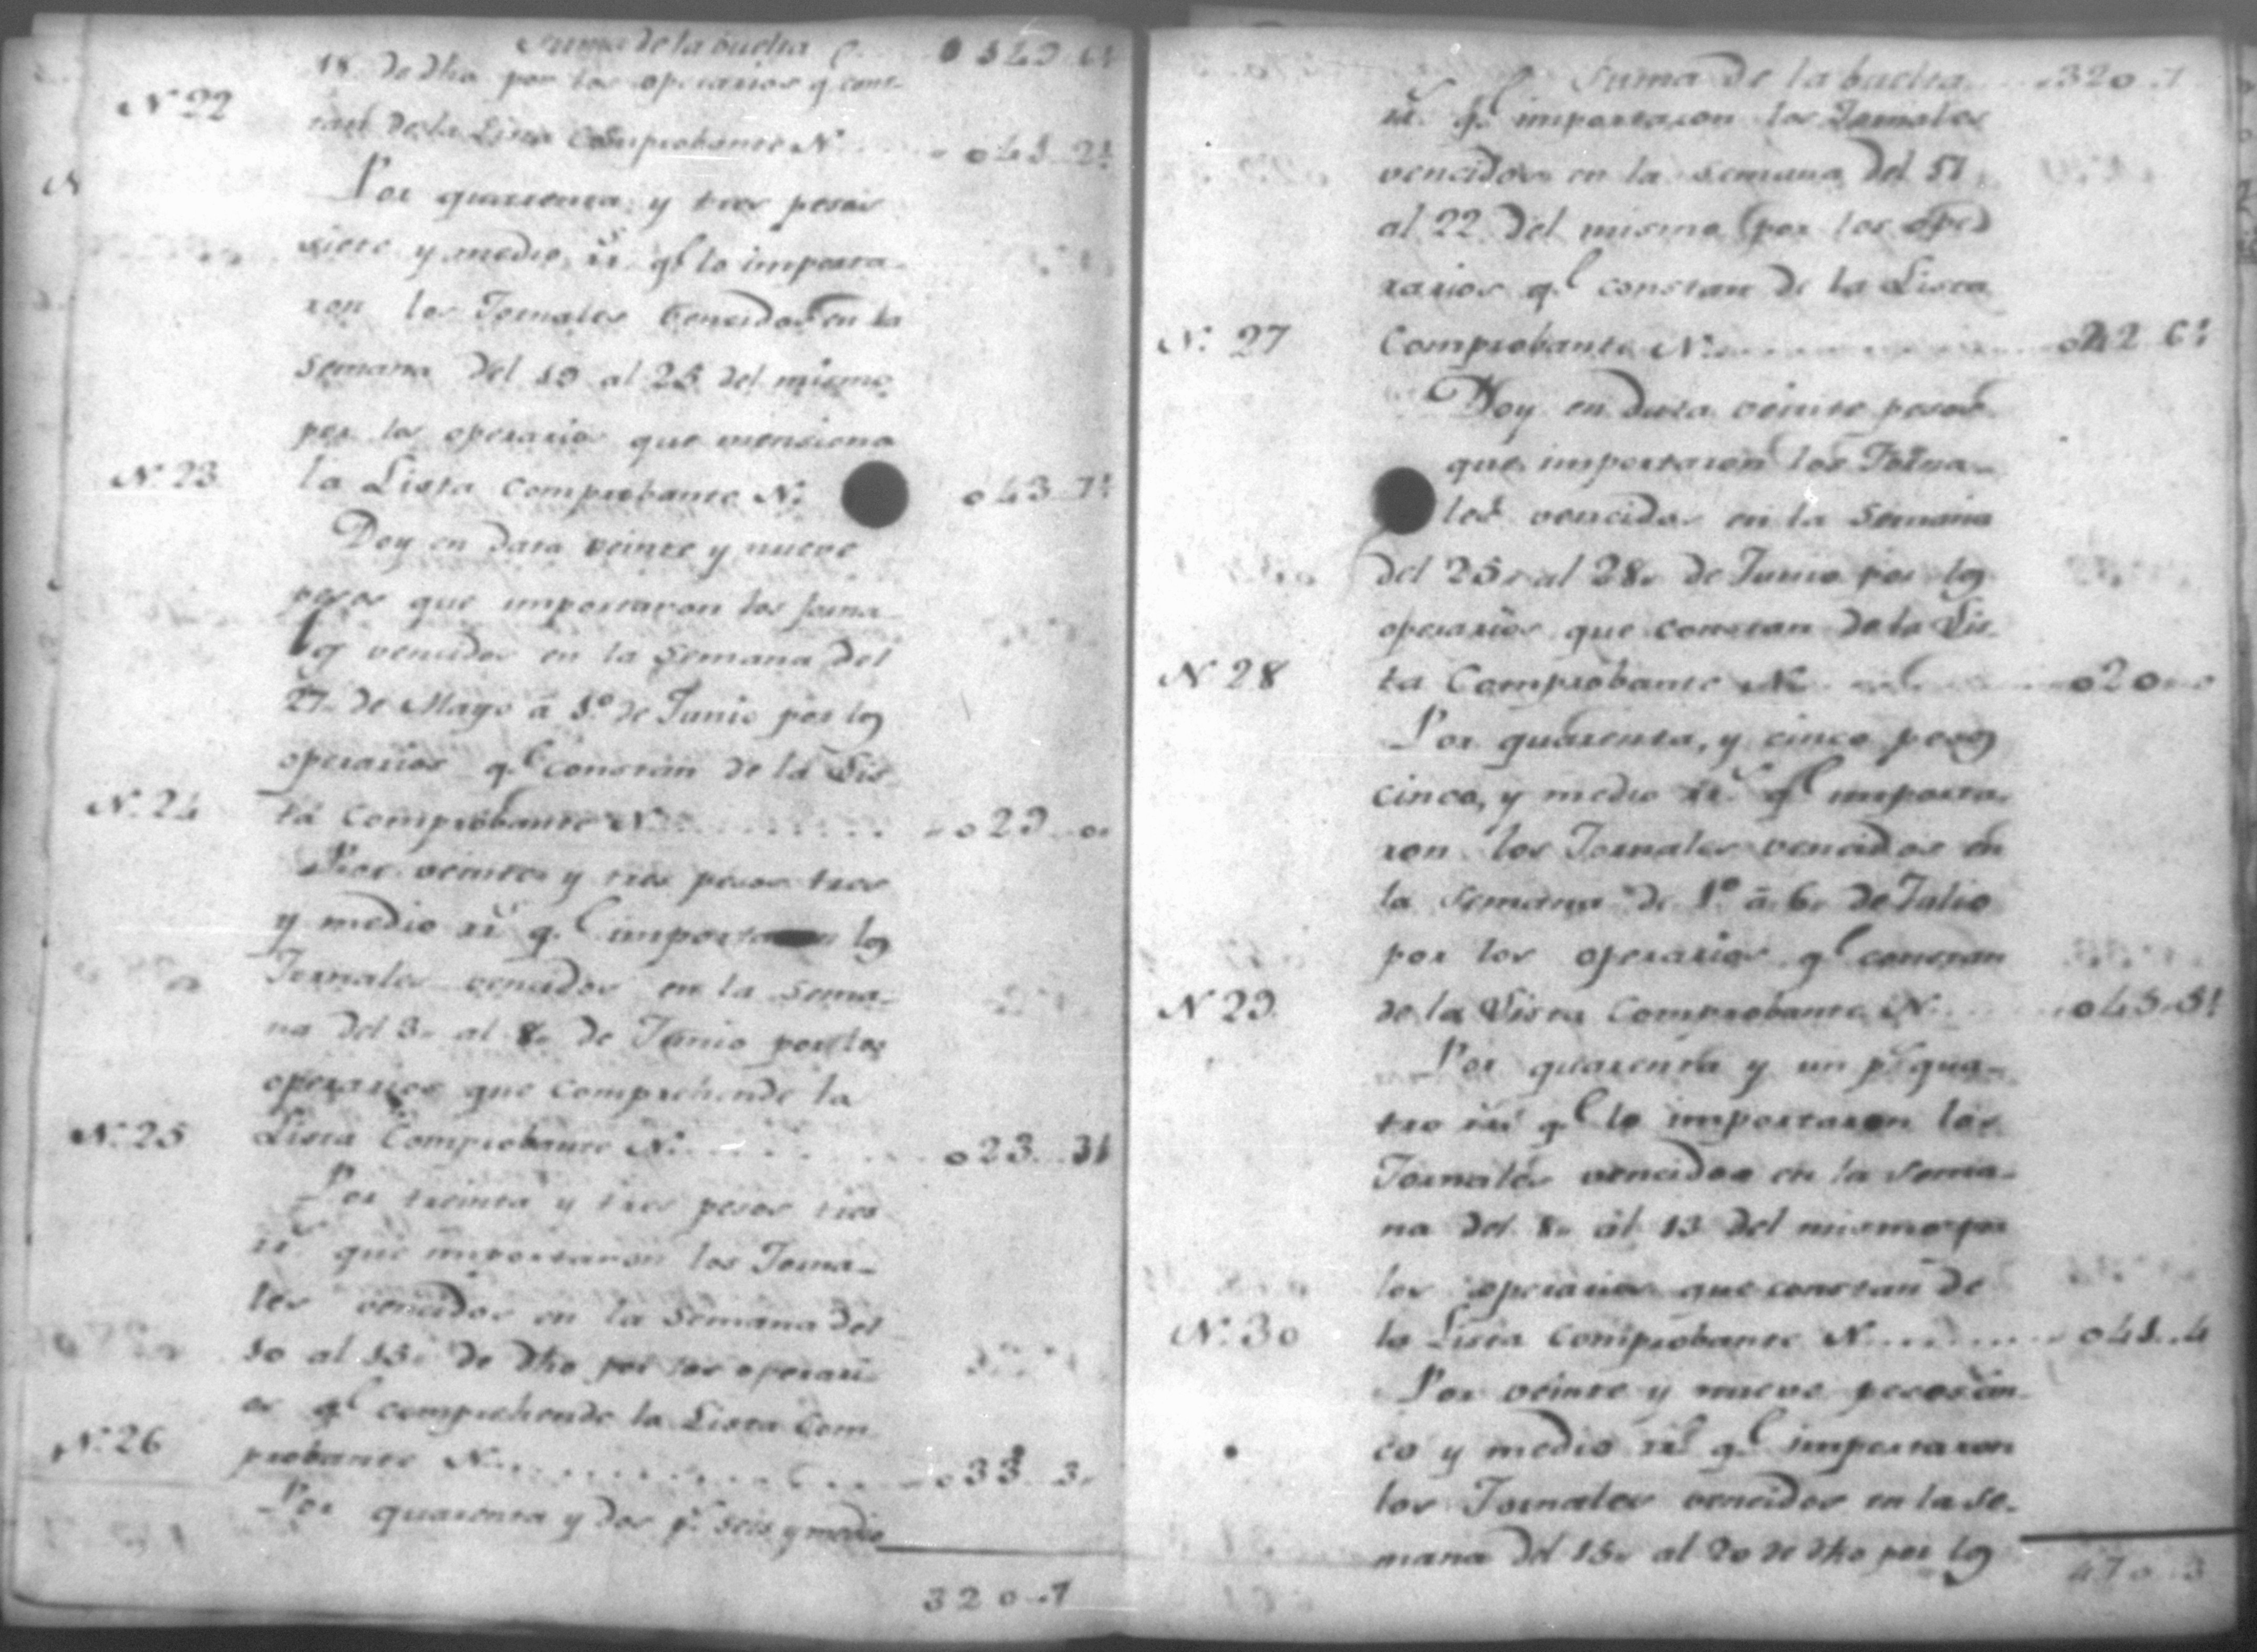 Suma de la buelta p. 0 129 6½
18 de dho por los operarios q.e cons-
N.22
tan de la Lista Comprobante N. 041 2½
Por quarenta y tres pesos
siete y medio rr.s q.e lo importa-
ron los Jornales bencidos en la
Semana del 20 al 25 del mismo
por los operarios que menciona
N. 23 la Lista Comprobante N. 043 7½
Doy en data veinte y nueve
pesos que importaron los jorna-
les vencidos en la Semana del
27 de Mayo a 1.º de Junio por los
operarios q.e constan de la Lis-
N. 24 ta Comprobante N. 029 0
Por veinte y tres pesos tres
y medio rr.s q.e importaron los
Jornales vencidos en la Sema-
na del 3. al 8. de Junio por los
operarios que comprehende la
N. 25 Lista Comprobante N. 023 3½
Por treinta y tres pesos tres
rr.s que importaron los Jorna-
les vencidos en la Semana del
10 al 15 de dho por los operari-
os q.e comprehende la Lista Com-
N. 26 probante N. 033 3
Por quarenta y dos p.s seis y medio
320 7
Suma de la buelta 320 7
rr.s q.e importaron los Jornales
vencidos en la semana del 17
al 22 del mismo por los ope-
rarios q.e constan de la Lista
N. 27 Comprobante N. 042 6½
Doy en data veinte pesos
que importaron los Jorna-
les vencidos en la Semana
del 25 al 28 de Junio por los
operarios que constan de la Lis-
N. 28 ta Comprobante N. 020 0
Por quarenta, y cinco pesos
cinco, y medio rr.s q.e importa-
ron los Jornales vencidos en
la Semana de 1.º a 6. de Julio
por los operarios q.e constan
N. 29 de la Lista Comprobante N. 045 5½
Por quarenta y un p.s qua-
tro rr.s q.e lo importaron los
Jornales vencidos en la Sema-
na del 8. al 13 del mismo por
los operarios que constan de
N. 30 la Lista Comprobante N. 041 4
Por veinte y nueve pesos cin-
co y medio rr.s q.e importaron
los Jornales vencidos en la Se-
mana del 15. al 20 de dho por los
470 3